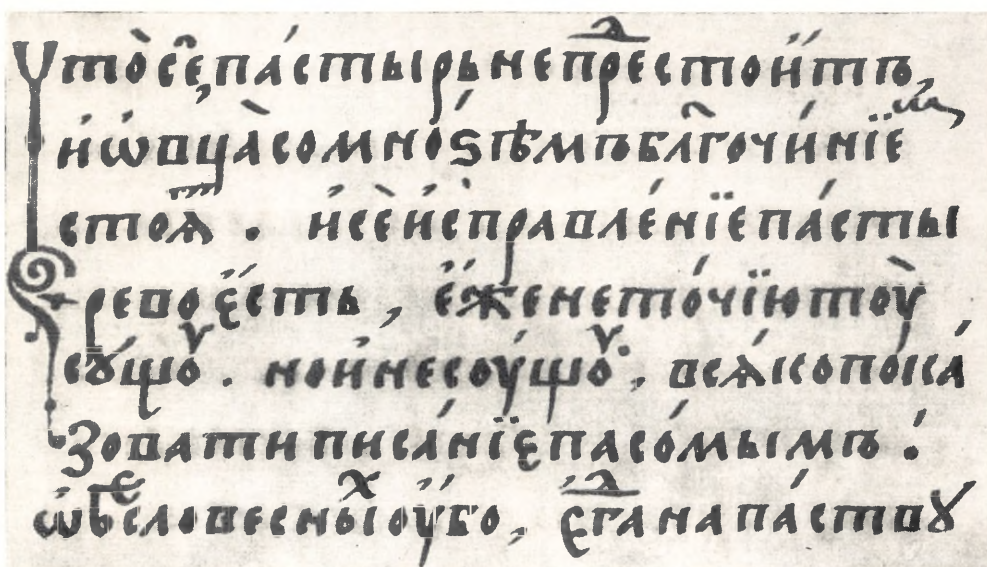 Что̀ сѐ, па́стырь не преⷣстои́тъ,
и҆ ѡ҆вца̀ со мно́ѕѣмъ бл҃гочи́нїеⷨ
стоѧ́ⷮ . и҆ сѐ и҆справле́нїе па́сты
рево є҆́сть , е҆́же не то́чїю тоу̀
сꙋ́щоѵ . но и҆ не соу́щоѵ , всѧ́ко пока́
зовати писа́нїє пасо́мымъ .
ѡ҆ беⷭ҇словесныⷯ оу҆́бо , є҆гⷣа на па́ствꙋ